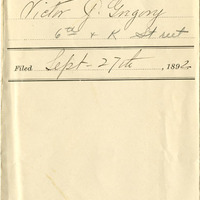 Victor J. Gregory
6th & K Street
Filed Sept-27th, 1892.